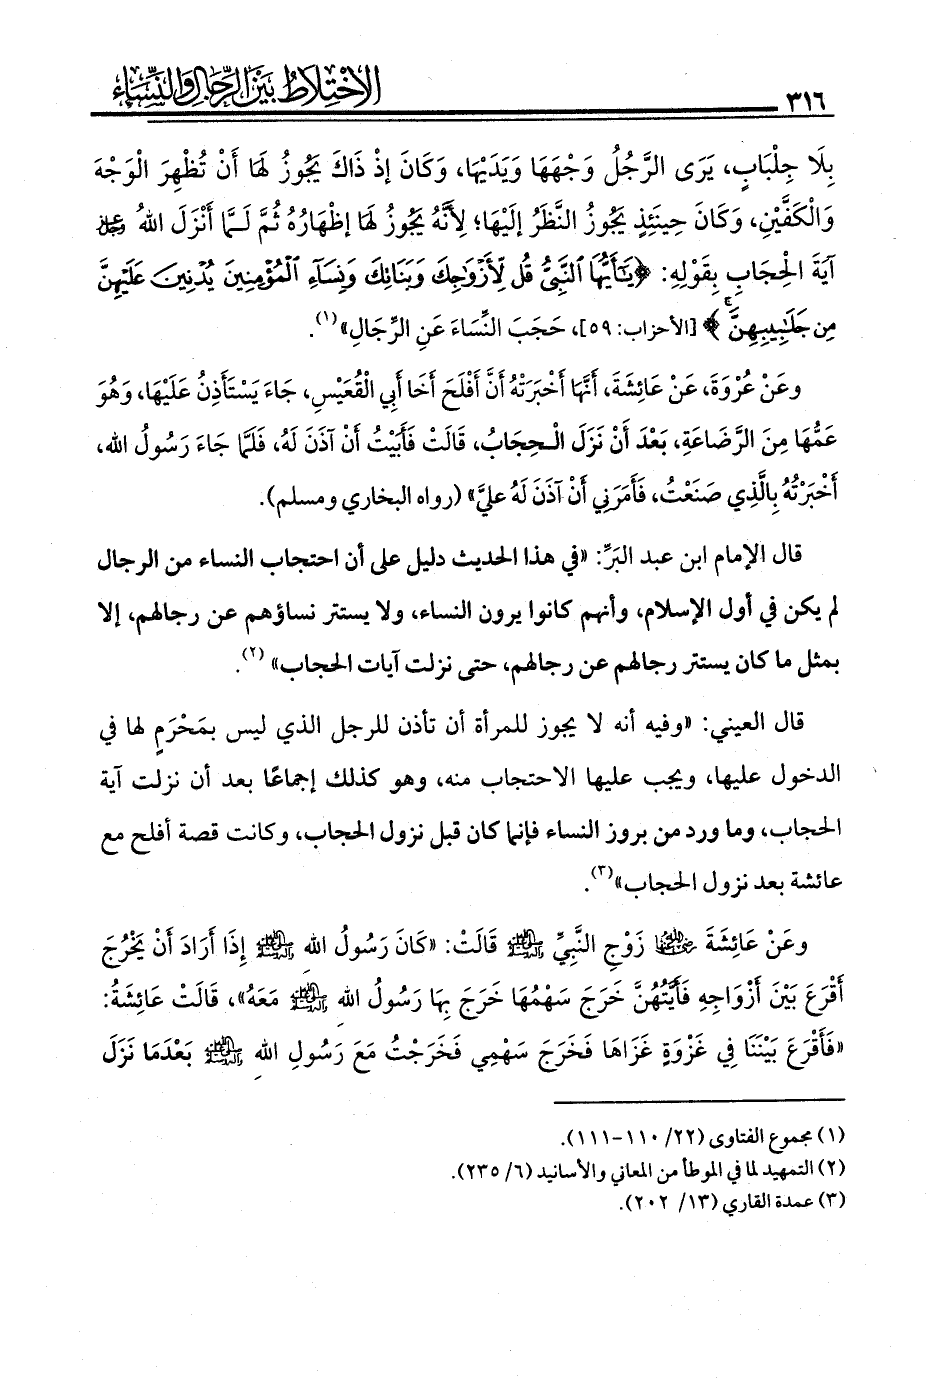 ٣١٦ الاخْتِلَاطُ بَيْنَ الرِّجَالِ وَالنِّسَاءِ
بِلَا جِلْبَابٍ، يَرَى الرَّجُلُ وَجْهَهَا وَيَدَيْهَا، وَكَانَ إِذْ ذَاكَ يَجُوزُ لَهَا أَنْ تُظْهِرَ الْوَجْهَ
وَالْكَفَّيْنِ، وَكَانَ حِينَئِذٍ يَجُوزُ النَّظَرُ إِلَيْهَا؛ لِأَنَّهُ يَجُوزُ لَهَا إِظْهَارُهُ ثُمَّ لَـمَّا أَنْزَلَ اللهُ ﷻ
آيَةَ الْحِجَابِ بِقَوْلِهِ: ﴿يَٰٓأَيُّهَا ٱلنَّبِىُّ قُل لِّأَزْوَٰجِكَ وَبَنَاتِكَ وَنِسَآءِ ٱلْمُؤْمِنِينَ يُدْنِينَ عَلَيْهِنَّ
مِن جَلَٰبِيبِهِنَّ﴾ [الأحزاب: ٥٩]، حَجَبَ النِّسَاءَ عَنِ الرِّجَالِ»(١).
وعَنْ عُرْوَةَ، عَنْ عَائِشَةَ، أَنَّهَا أَخْبَرَتْهُ أَنَّ أَفْلَحَ أَخَا أَبِي الْقُعَيْسِ، جَاءَ يَسْتَأْذِنُ عَلَيْهَا، وَهُوَ
عَمُّهَا مِنَ الرَّضَاعَةِ، بَعْدَ أَنْ نَزَلَ الْـحِجَابُ، قَالَتْ فَأَبَيْتُ أَنْ آذَنَ لَهُ، فَلَمَّا جَاءَ رَسُولُ الله،
أَخْبَرْتُهُ بِالَّذِي صَنَعْتُ، فَأَمَرَنِي أَنْ آذَنَ لَهُ عليَّ» (رواه البخاري ومسلم).
قال الإمام ابن عبد البَرِّ: «في هذا الحديث دليل على أن احتجاب النساء من الرجال
لم يكن في أول الإسلام، وأنهم كانوا يرون النساء، ولا يستتر نساؤهم عن رجالهم، إلا
بمثل ما كان يستتر رجالهم عن رجالهم، حتى نزلت آيات الحجاب»(٢).
قال العيني: «وفيه أنه لا يجوز للمرأة أن تأذن للرجل الذي ليس بمَحْرَمٍ لها في
الدخول عليها، ويجب عليها الاحتجاب منه، وهو كذلك إجماعًا بعد أن نزلت آية
الحجاب، وما ورد من بروز النساء فإنما كان قبل نزول الحجاب، وكانت قصة أفلح مع
عائشة بعد نزول الحجاب»(٣).
وعَنْ عَائِشَةَ رضي الله عنها زَوْجِ النَّبِيِّ ﷺ قَالَتْ: «كَانَ رَسُولُ اللهِ ﷺ إِذَا أَرَادَ أَنْ يَخْرُجَ
أَقْرَعَ بَيْنَ أَزْوَاجِهِ فَأَيَّتُهُنَّ خَرَجَ سَهْمُهَا خَرَجَ بِهَا رَسُولُ اللهِ ﷺ مَعَهُ»، قَالَتْ عَائِشَةُ:
«فَأَقْرَعَ بَيْنَنَا فِي غَزْوَةٍ غَزَاهَا فَخَرَجَ سَهْمِي فَخَرَجْتُ مَعَ رَسُولِ اللهِ ﷺ بَعْدَمَا نَزَلَ
(١) مجموع الفتاوى (٢٢/ ١١٠-١١١).
(٢) التمهيد لما في الموطأ من المعاني والأسانيد (٦/ ٢٣٥).
(٣) عمدة القاري (١٣/ ٢٠٢).